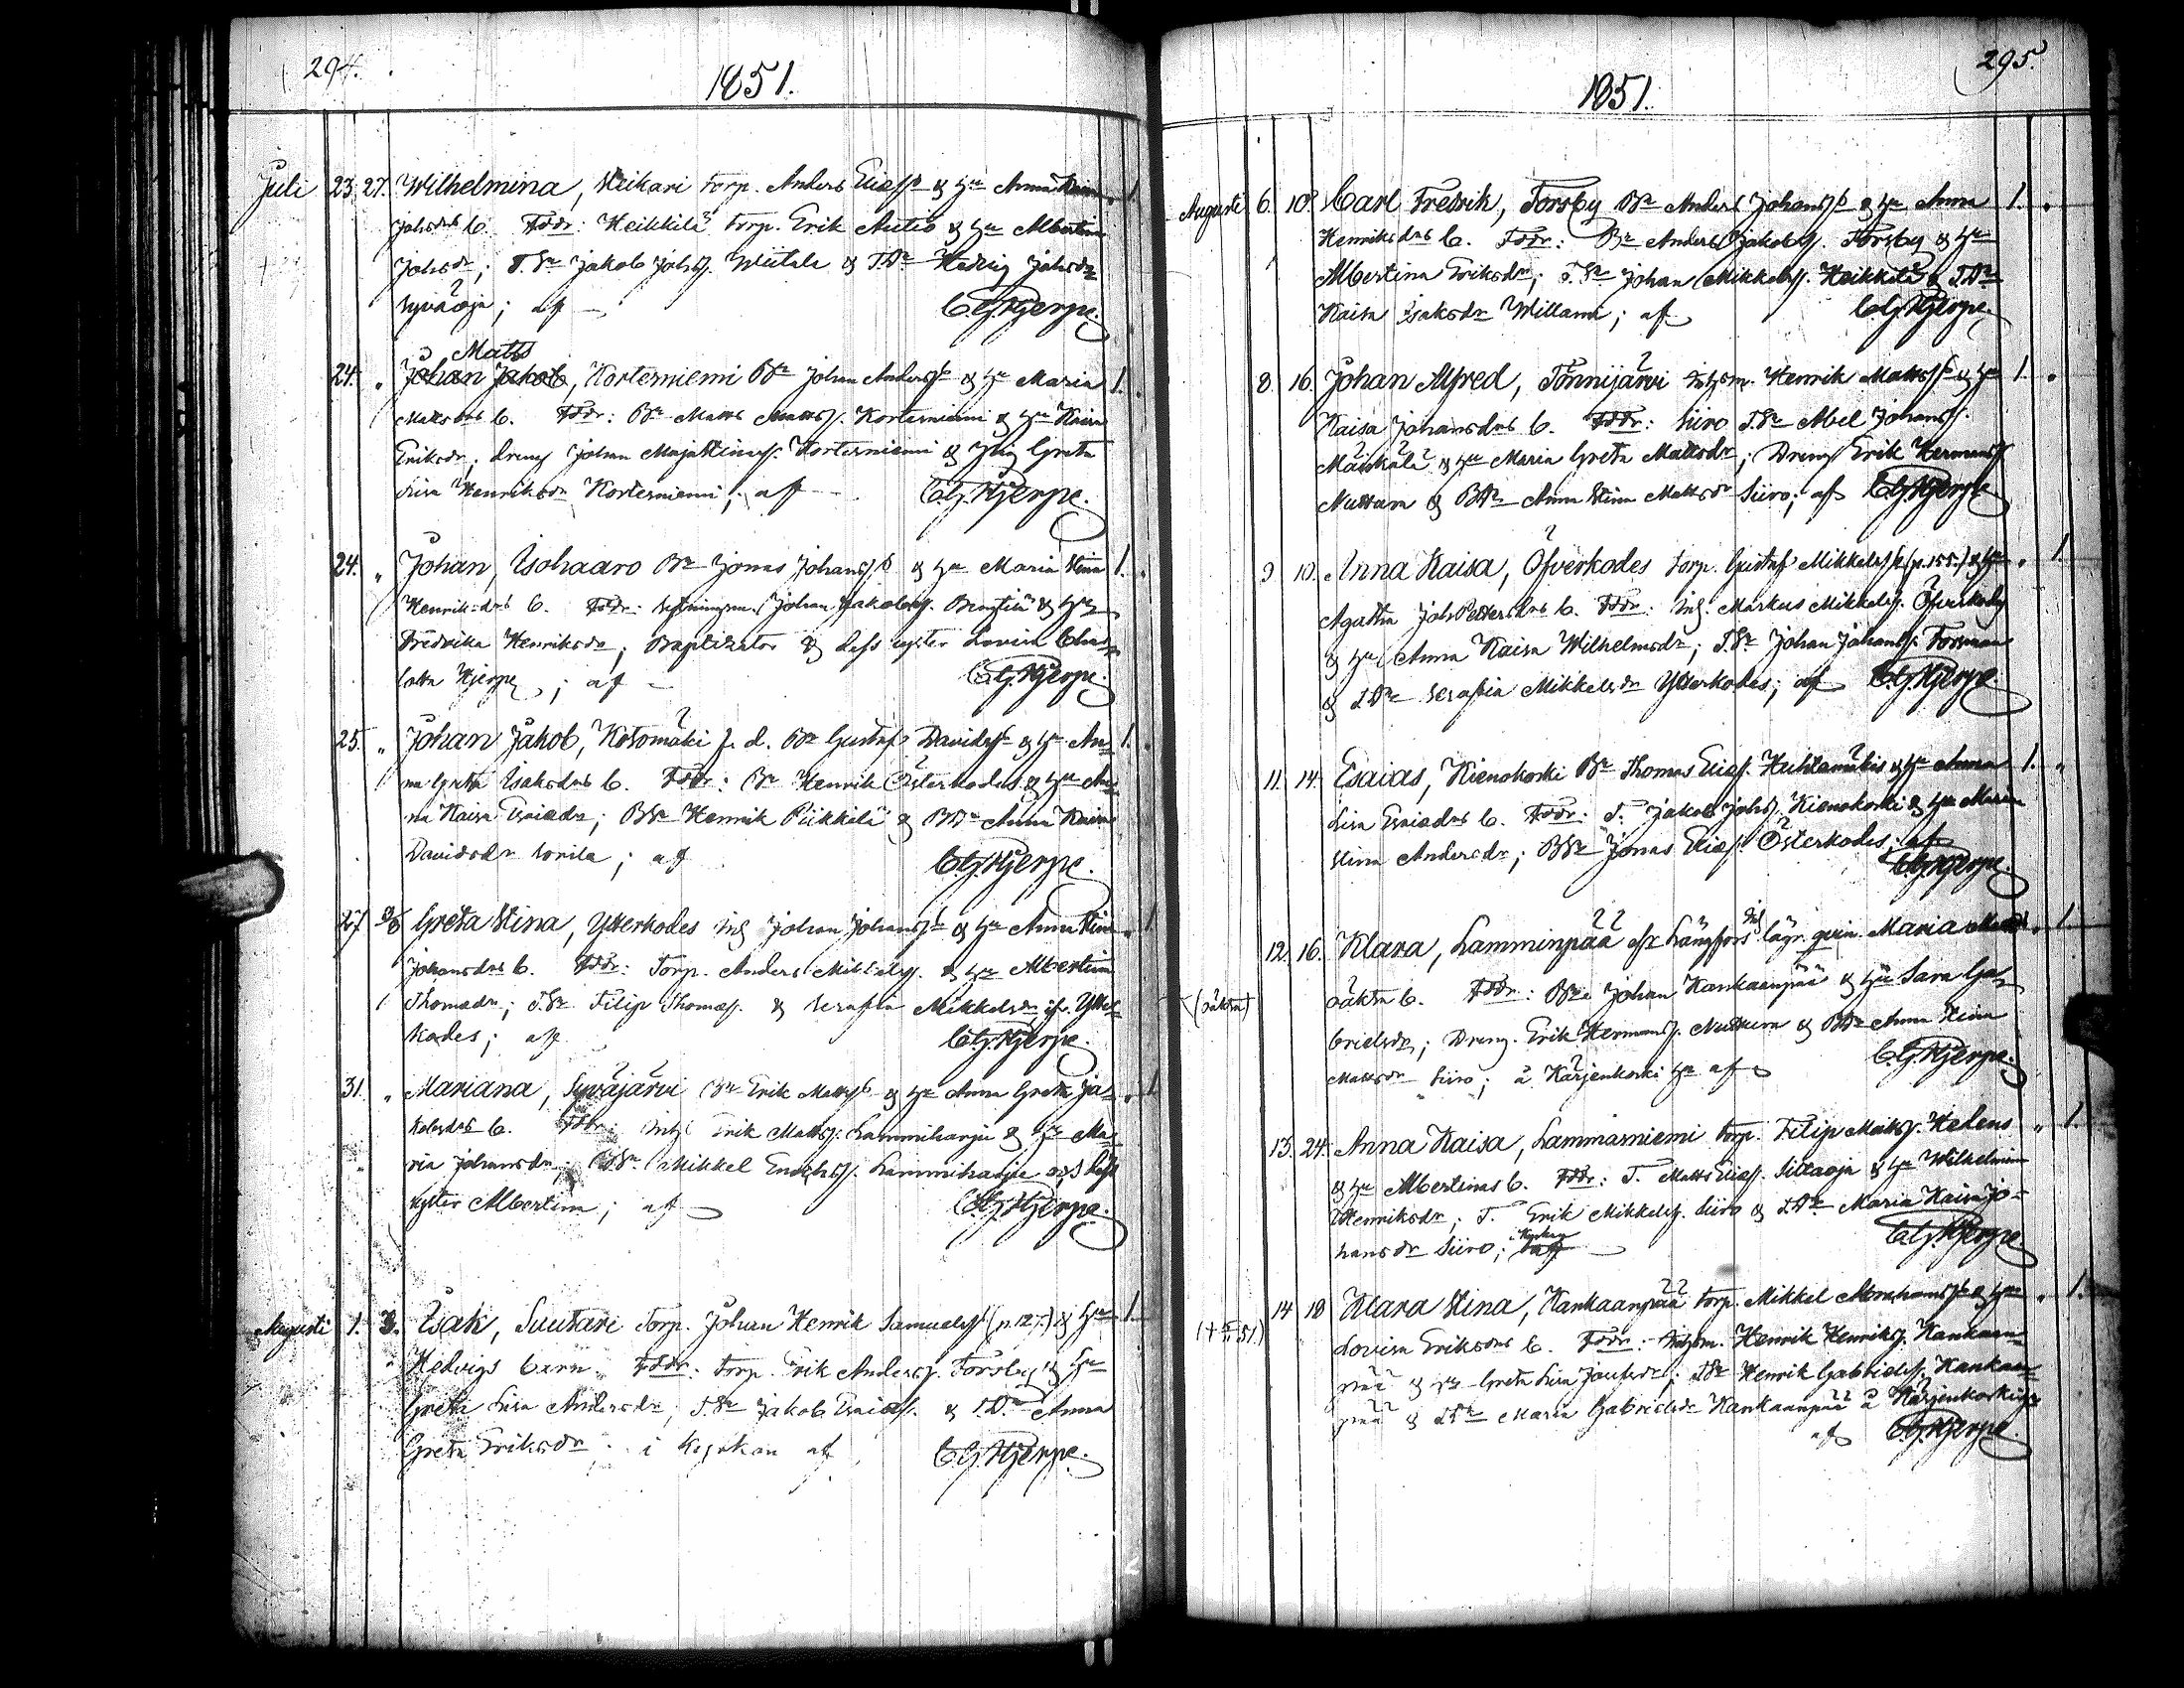 294.
1851.
Juli 23. 27. Wilhelmina, Heikari torp. Anders Eliæss. & hu Anna Kaisa „ 1.
Johsdrs b. Fddr: Heikkilä torp. Erik Autio & hu Albertina
Johsdr; T.Sn Jakob Johss. Wiitala & T.Dr Hedvig Johsdr
Syväoja; af — C.G. Hjerpe.
Matts
24. „ Johan Jakob, Korteniemi Bn Johan Anderss. & hu Maria 1.
Mattsdrs b. Fddr: Bn Matts Mattss. Korteniemi & hu Kaisa
Eriksdr; dreng Johan Korteniemi & Greta
Lisa Henriksdr Korteniemi; af — C.G. Hjerpe.
24. „ Johan, Isohaaro Bn Jonas Johanss. & hu Maria Stina 1.
Henriksdrs b. Fddr: Johan Jakobss. & hu
Fredrika Henriksdr; Baptizator & dess syster Lovisa Char-
lotta Hjerpe; af — C.G. Hjerpe.
25. „ Johan Jakob, Kotomäki f. d. Bn Gustaf Davidss. & hu An- 1.
na Greta Isaksdrs b. Fddr: Bn Henrik Österkodes & hu An-
na Kaisa Esaiædr; BSn Henrik Piikkilä & BDr Anna Kaisa
Davidsdr Sorila; af C.G. Hjerpe.
27. Greta Stina, Ytterkodes Inh Johan Johanss. & hu Anna Stina „ 1
Johansdrs b. Fddr: Torp. Anders Mikkelss. & hu Albertina
Thomædr; T.Sn Filip Thomæss. & Serafia Mikkelsdr Ytter-
kodes; af C.G. Hjerpe.
31. „ Mariana, Syväjärvi Bn Erik Mattss. & hu Anna Greta Ja- „ 1
kobsdrs b. Fddr: Inh Erik Mattss. Lammiharju & hu Ma-
ria Johansdr; Mikkel Enochss. Lammiharju och dess
syster Albertina; af C.G. Hjerpe.
Augusti 1. 3. Isak, Suutari Torp. Johan Henrik Samuelss. (p. 127.) & hu 1.
Hedvigs barn. Fddr: Torp. Erik Anderss. Forsby & hu
Greta Lisa Andersdr, T.Sn Jakob Esaiæss. & T.D. Anna
Greta Eriksdr i Kyrkan af C.G. Hjerpe.
295.
1851.
Augusti 6. 10. Carl Fredrik, Forsby Bn Anders Johanss. & hu Anna 1. „
Henriksdrs b. Fddr: Bn Anders Jakobss. Forsby & hu
Albertina Eriksdr; T.Sn Johan Mikkelss. Heikkilä & T.Dr
Kaisa Isaksdr Willama; af C.G. Hjerpe.
8. 16. Johan Alfred, Tönnijärvi Inhysm. Henrik Mattss. & hu 1. „
Kaisa Johansdrs b. Fddr: Siiro T.Sn Abel Johanss.
Mäiskälä & hu Maria Greta Mattsdr; Dreng Erik Hermanss.
Muttara & BDr Anna Stina Mattsdr Siiro; af C.G. Hjerpe
9. 10. Anna Kaisa, Öfverkodes torp. Gustaf Mikkelss. (p. 155.) & hu „ 1.
Agatha Joh. Pettersdrs b. Fddr: Inh. Markus Mikkelss. Öfverkodes
& hu Anna Kaisa Wilhelmsdr; T.Sn Johan Johanss. Forsman
& T.Dr Serafia Mikkelsdr Ytterkodes; af C.G. Hjerpe
11. 14. Esaias, Kienokoski Bn Thomas Eliæss. Huhtamäkis & hu Anna 1. „
Lisa Esaiædrs b. Fddr: T. Jakob Johss. Kienokoski & hu Maria
Stina Andersdr; BSn Jonas Eliæss. Österkodes; af
C.G. Hjerpe.
12. 16. Klara, Lamminpää Inh lägr. qvin. Maria „ 1
(oäkta) oäkta b. Fddr: Bn Johan Kankaanpää & hu Sara Ga-
brielsdr; Dreng. Erik Hermanss. Muttara & BDr Anna Stina
Mattsdr Siiro; å Karjenkoski af C.G. Hjerpe.
13. 24. Anna Kaisa, Lammasniemi torp. Filip Mattss. Hedens „ 1.
& hu Albertinas b. Fddr: T. Matts Eliæss. Siltaoja & hu Wilhelmina
Henriksdr; T. Erik Mikkelss. Siiro & T.Dr Maria Kaisa Jo-
hansdr Siiro; i Kyrkan af C.G. Hjerpe.
14 18 Klara Stina, Kankaanpää torp. Mikkel Abrahamss. & hu „ 1.
Lovisa Eriksdrs b. Fddr: Inhysm. Henrik Henrikss. Kankaan-
pää & hu Greta Lisa; T.Sn Henrik Gabrielss. Kankaan-
pää & T.Dr Maria Gabrielsdr Kankaanpää å Karjenkoski
af C.G. Hjerpe.